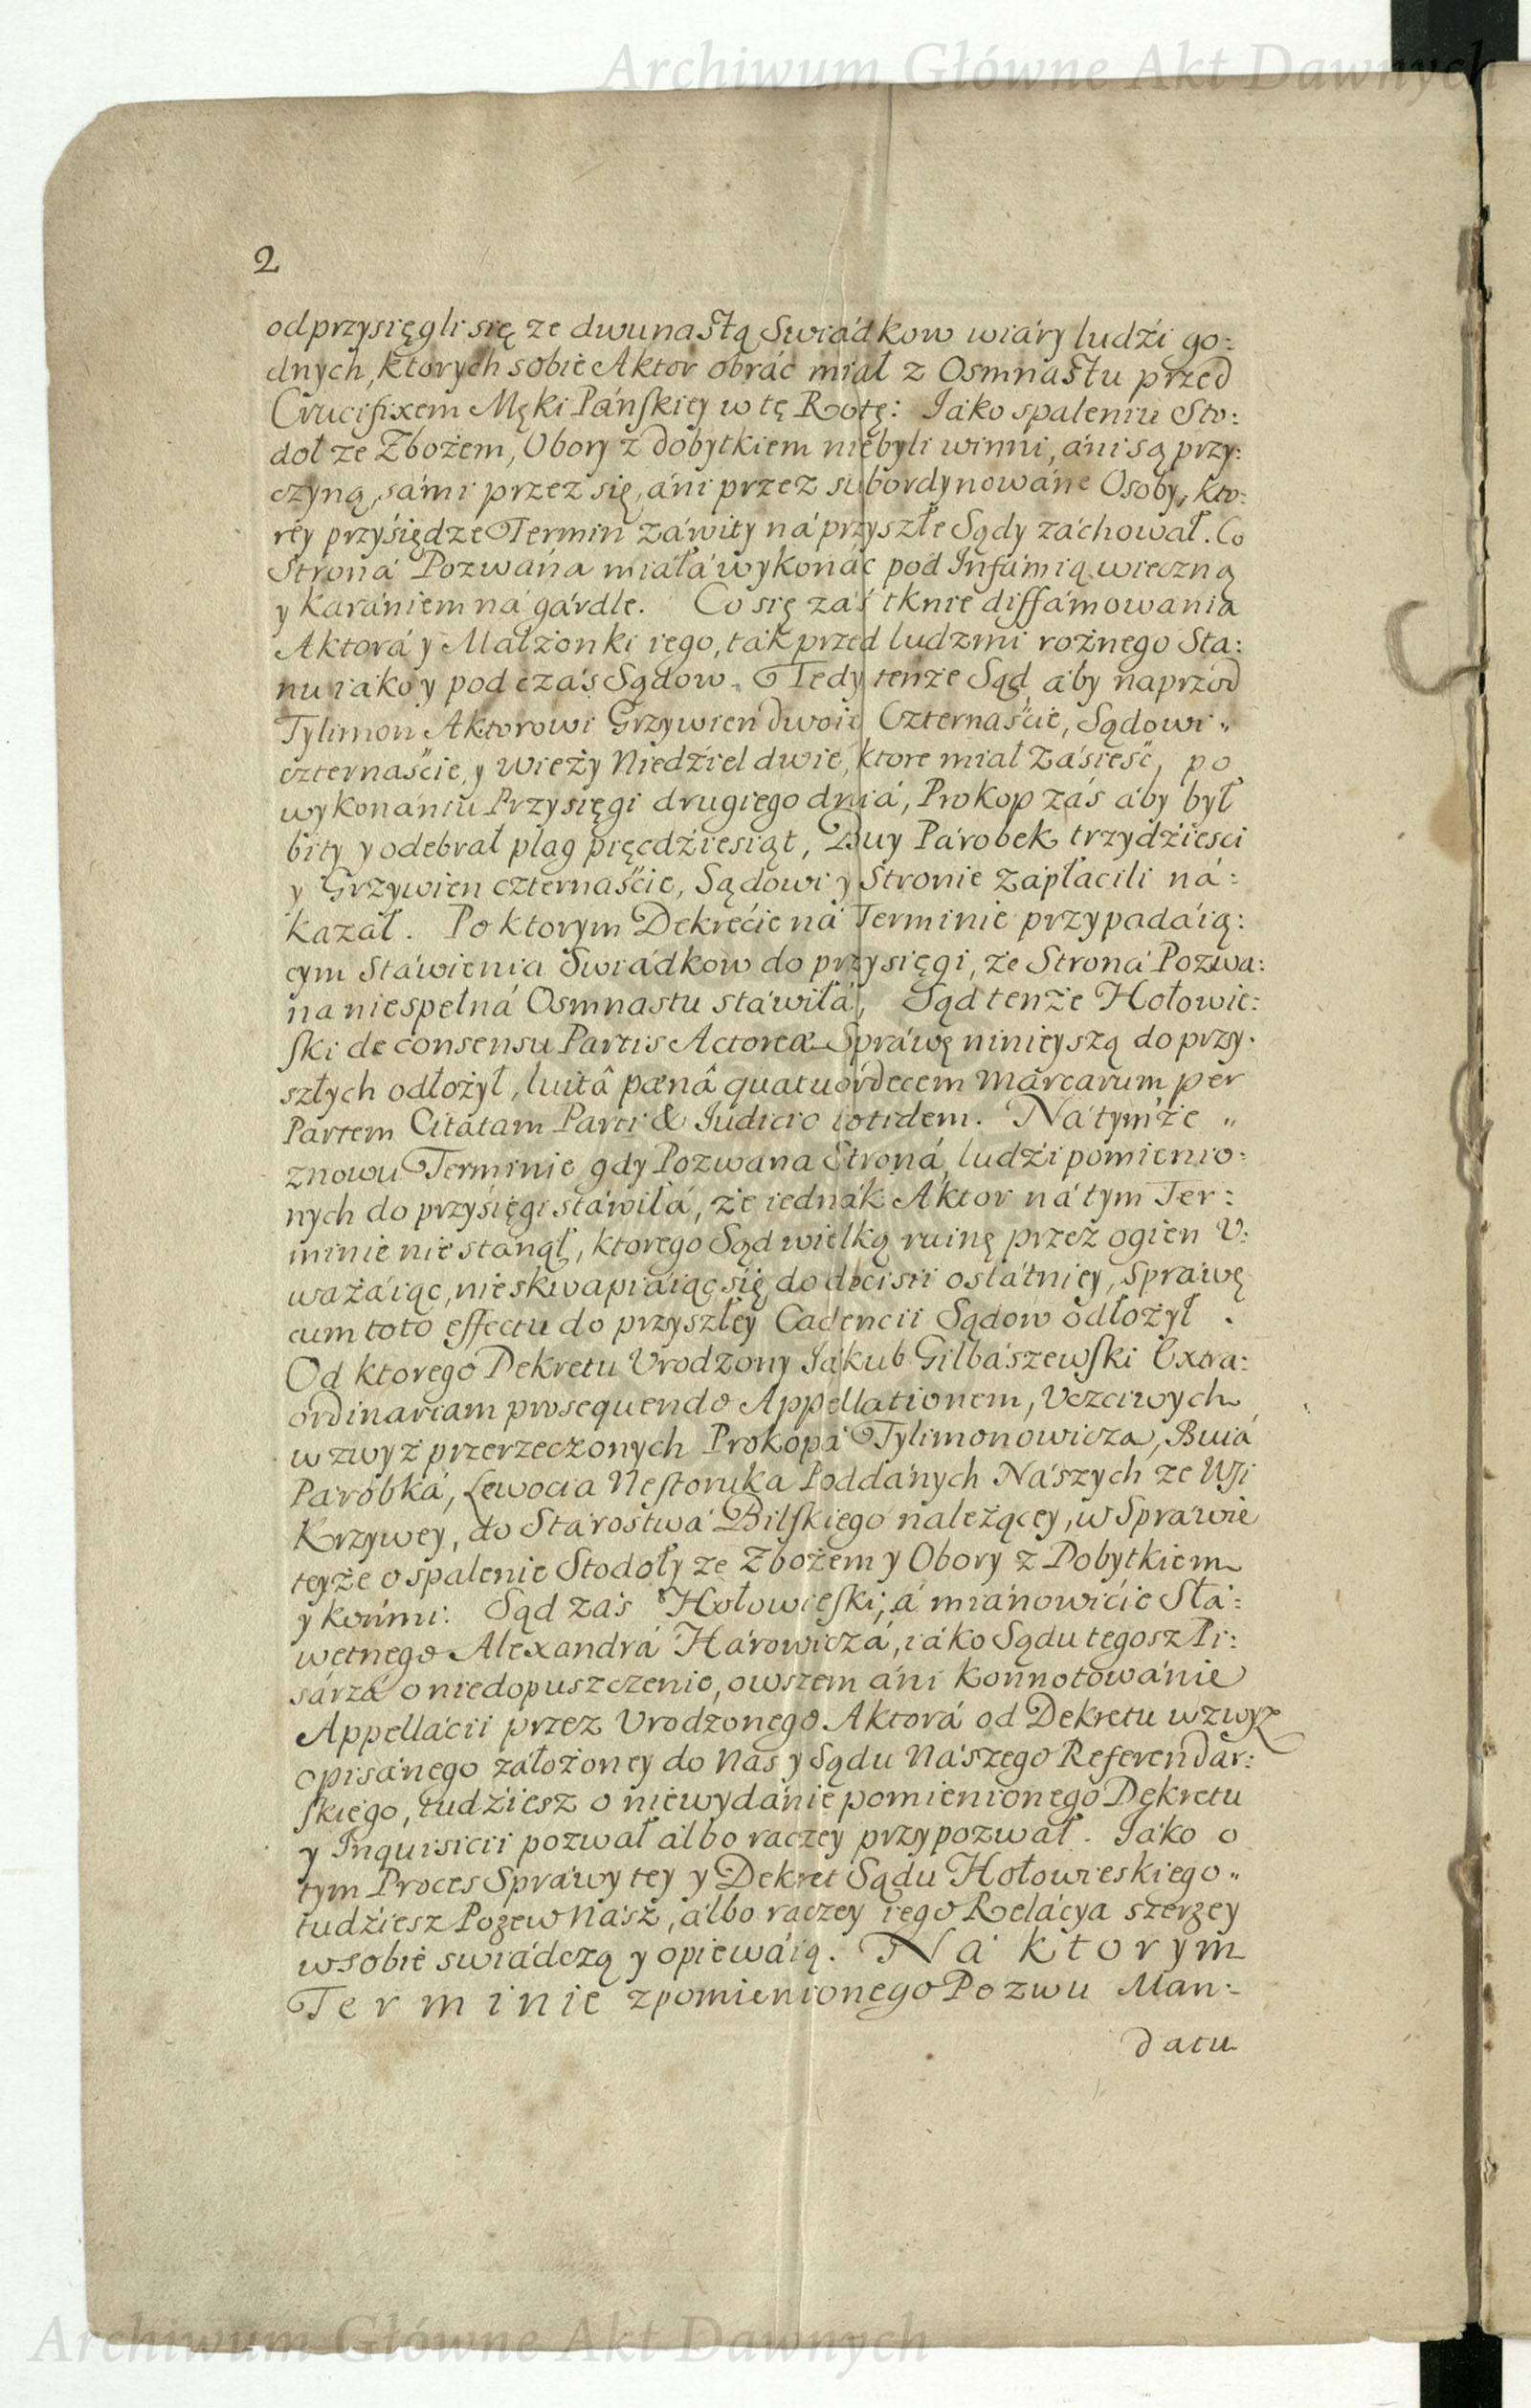 Archiwum Główne Akt Dawnych
2
odprzysięgli się ze dwunastą Swiádkow wiáry ludźi go:
dnych, ktorych sobie Aktor obráć miał z Osmnastu przed
Crucifixem Męki Páńskiey w tę Rotę: Iáko spaleniu Sto:
doł ze Zbożem, Obory z dobytkiem niebyli winni, áni są przy:
czyną, sámi przez się, áni przez subordynowáne Osoby, kto:
rey przyśiędze Termin záwity ná przyszłe Sądy záchował. Co
Stroná Pozwána miáłá wykonáć pod Infámią wieczną
y karániem ná gárdle. Co się záś tknie diffámowania
Aktorá y Małżonki iego, ták przed ludzmi rożnego Sta:
nu iáko y podczás Sądow. Tedy tenże Sąd áby naprzod
Tylimon Aktorowi Grzywien dwoie Czternaście, Sądowi „
czternaście, y wieży Niedźiel dwie, ktore miał záśieść, po
wykonániu Przysięgi drugiego dniá, Prokop záś áby był
bity y odebrał plag pięcdźiesiąt, Buy Párobek trzydźieści
y Grzywien czternaście, Sądowi y Stronie zápłacili ná:
kazał. Po ktorym Dekrećie ná Terminie przypadáią:
cym Stáwienia Swiádkow do przysięgi, że Stroná Pozwa:
na niespełná Osmnastu stáwiłá, Sąd tenże Hołowie:
ski de consensu Partis Actoreæ Spráwę ninieyszą do przy:
szłych odłożył, luitâ pænâ quatuordecem Marcarum per
Partem Citatam Parti & Iudicio totidem. Ná tymże „
znowu Terminie gdy Pozwana Stroná ludźi pomienio:
nych do przyśięgi stáwiłá, że iednák Aktor ná tym Ter:
minie niestánął, ktorego Sąd wielką ruinę przez ogien V:
ważáiąc, nieskwapiáiąc się do decisii ostátniey, spráwę
cum toto effectu do przyszłey Cadencii Sądow odłożył .
Od ktorego Dekretu Vrodzony Iákub Gilbászewski Extra:
ordinariam prosequendo Appellationem, Vczciwych
wzwyż przerzeczonych Prokopá Tylimonowicza, Buiá
Párobká, Lewocia Nestoruka Poddánych Nászych ze Wśi
Krzywey, do Stárostwá Bilskiego należącey, w Spráwie
teyże o spalenie Stodoły ze Zbożem y Obory z Dobytkiem
y końmi: Sąd záś Hołowieski, á miánowićie Słá:
wetnego Alexandrá Hárowiczá, iáko Sądu tegosz Pi:
sárzá o niedopuszczenie, owszem áni konnotowánie
Appellácii przez Vrodzonego Aktorá od Dekretu wzwyż
opisánego záłożoney do Nas y Sądu Nászego Referendár:
skiego, tudźiesz o niewydánie pomienionego Dekretu
y Inquisicii pozwał álbo ráczey przypozwał. Iáko o
tym Proces Spráwy tey y Dekret Sądu Hołowieskiego „
tudźiesz Pozew Nász, álbo raczey iego Relácya szerzey
w sobie swiádczą y opiewáią. Ná ktorym
Terminie z pomienionego Pozwu Man:
datu
Archiwum Główne Akt Dawnych